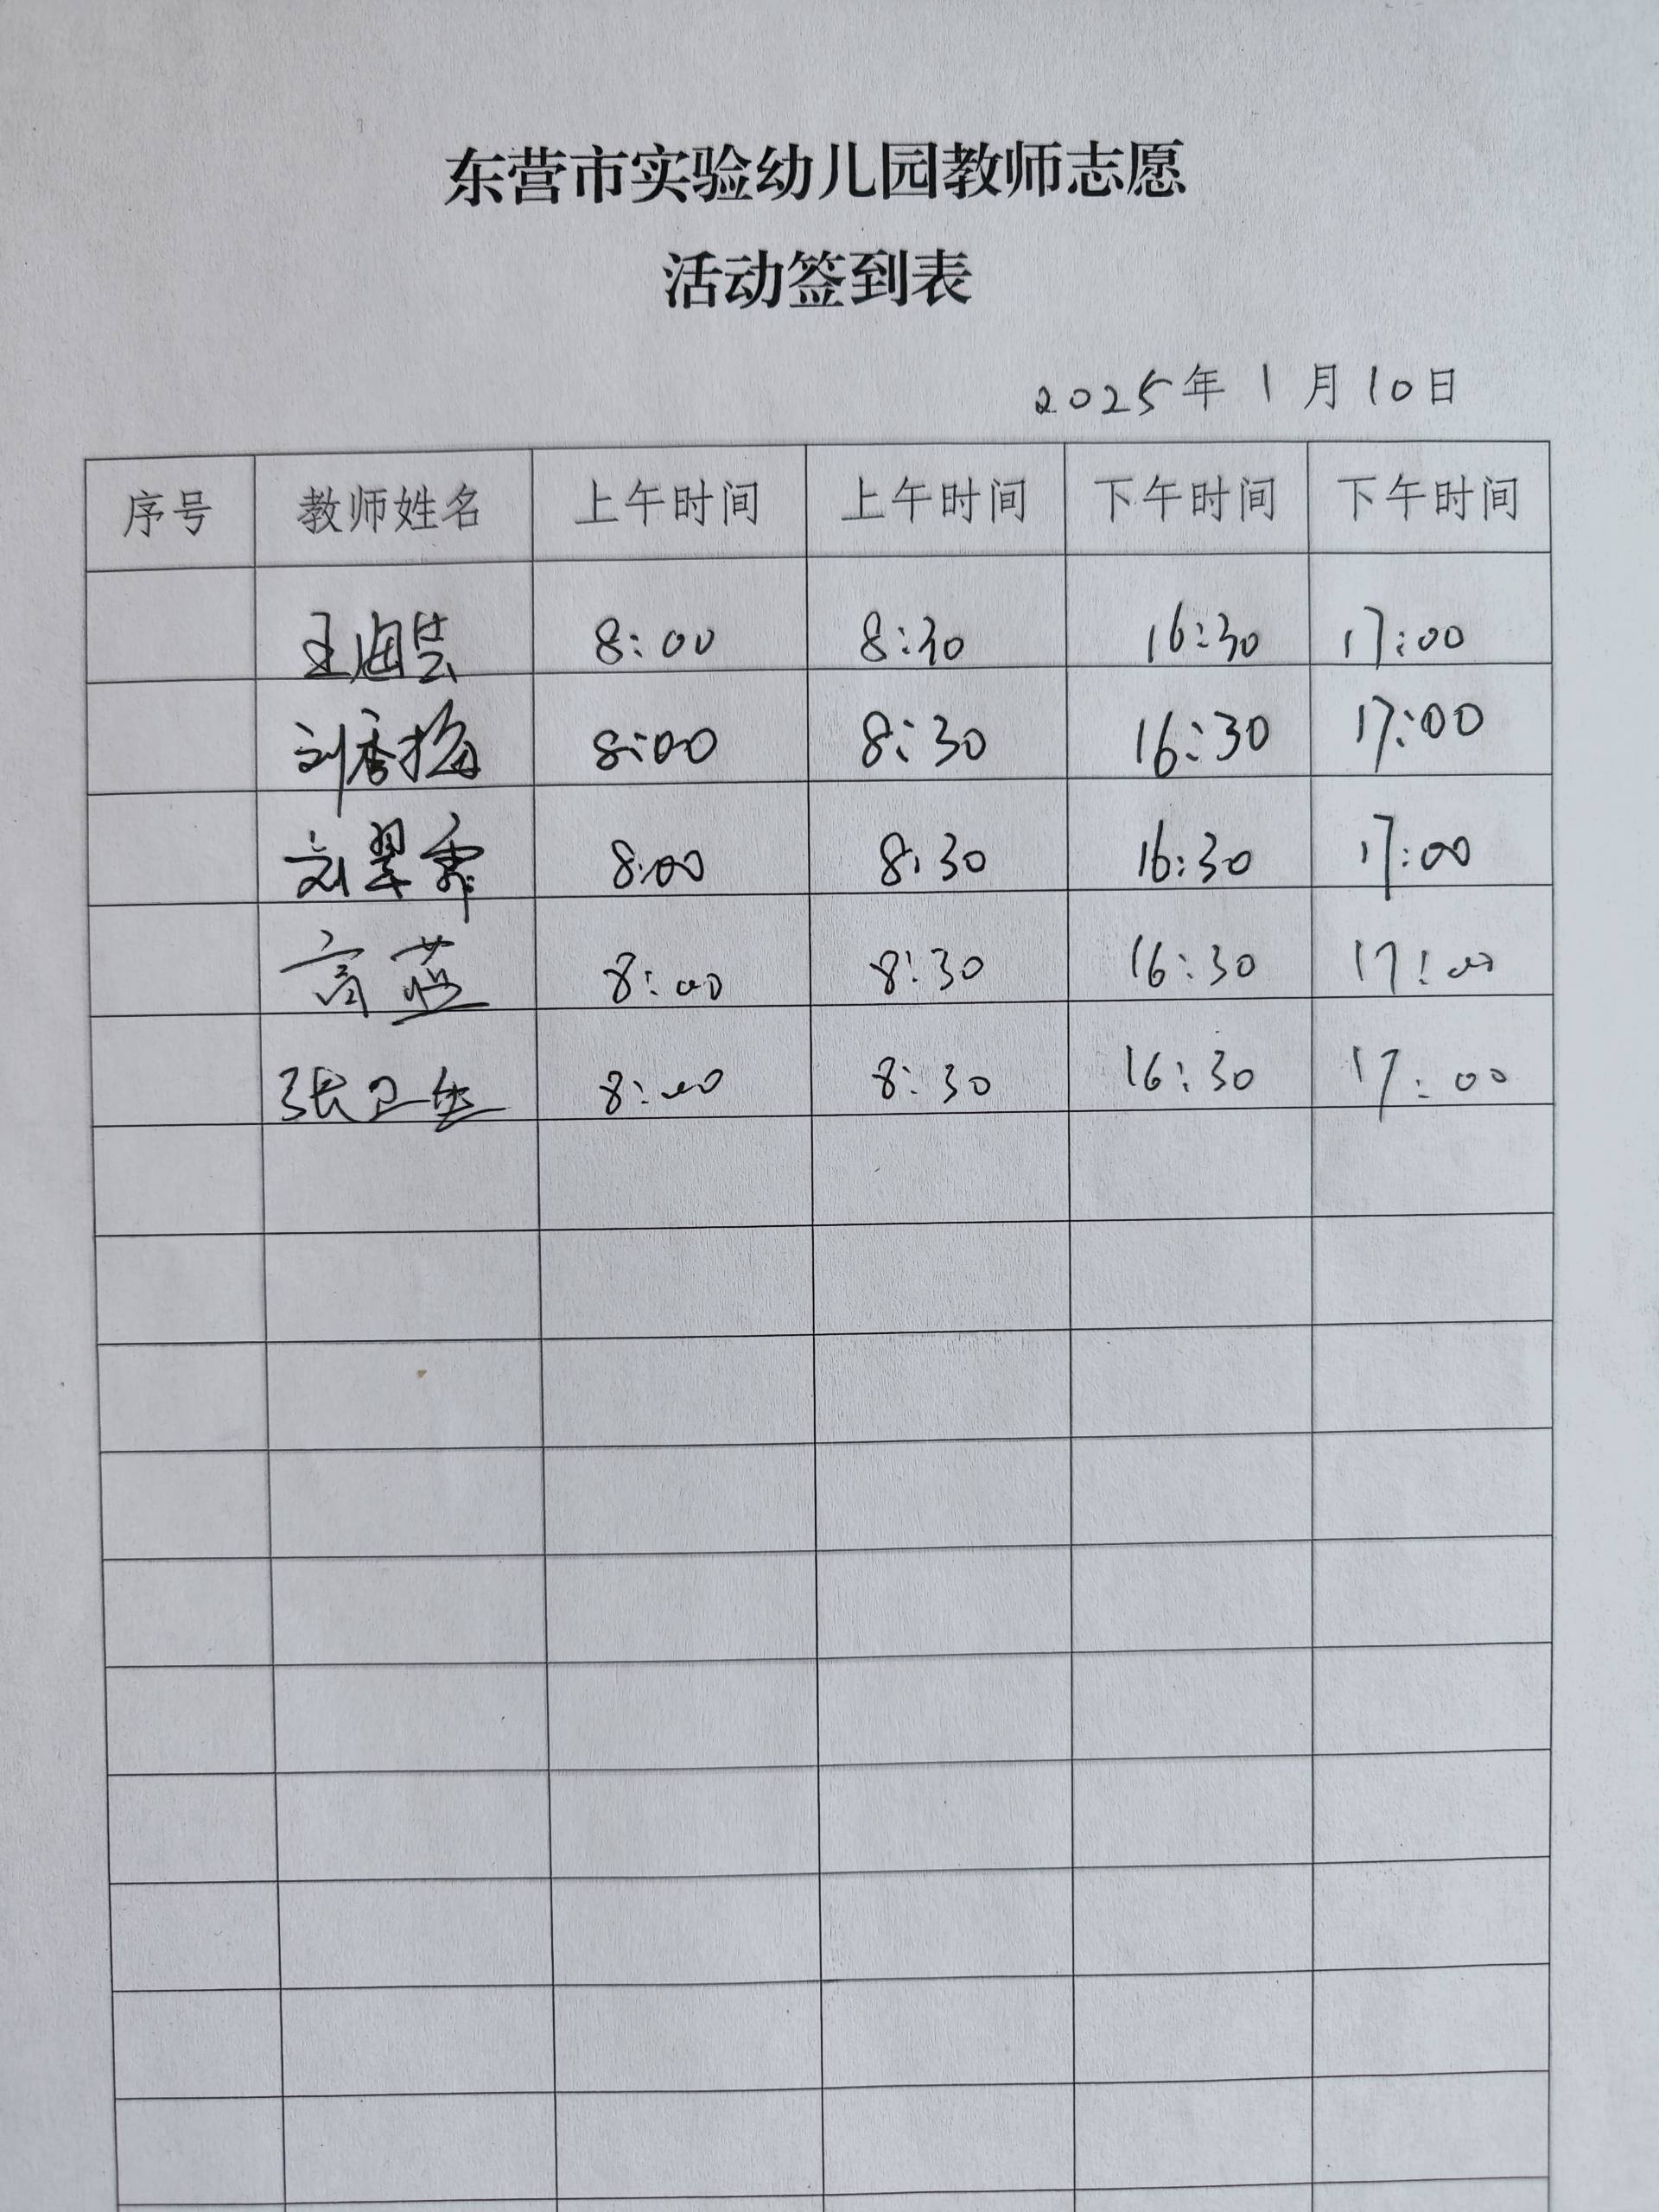 东营市实验幼儿园教师志愿
活动签到表
2025年 1 月 10日
序号 教师姓名 上午时间 上午时间 下午时间 下午时间
王海芸 8:00 8:30 16:30 17:00
刘香梅 8:00 8:30 16:30 17:00
刘翠霞 8:00 8:30 16:30 17:00
高 8:00 8:30 16:30 17:00
张卫 8:00 8:30 16:30 17:00